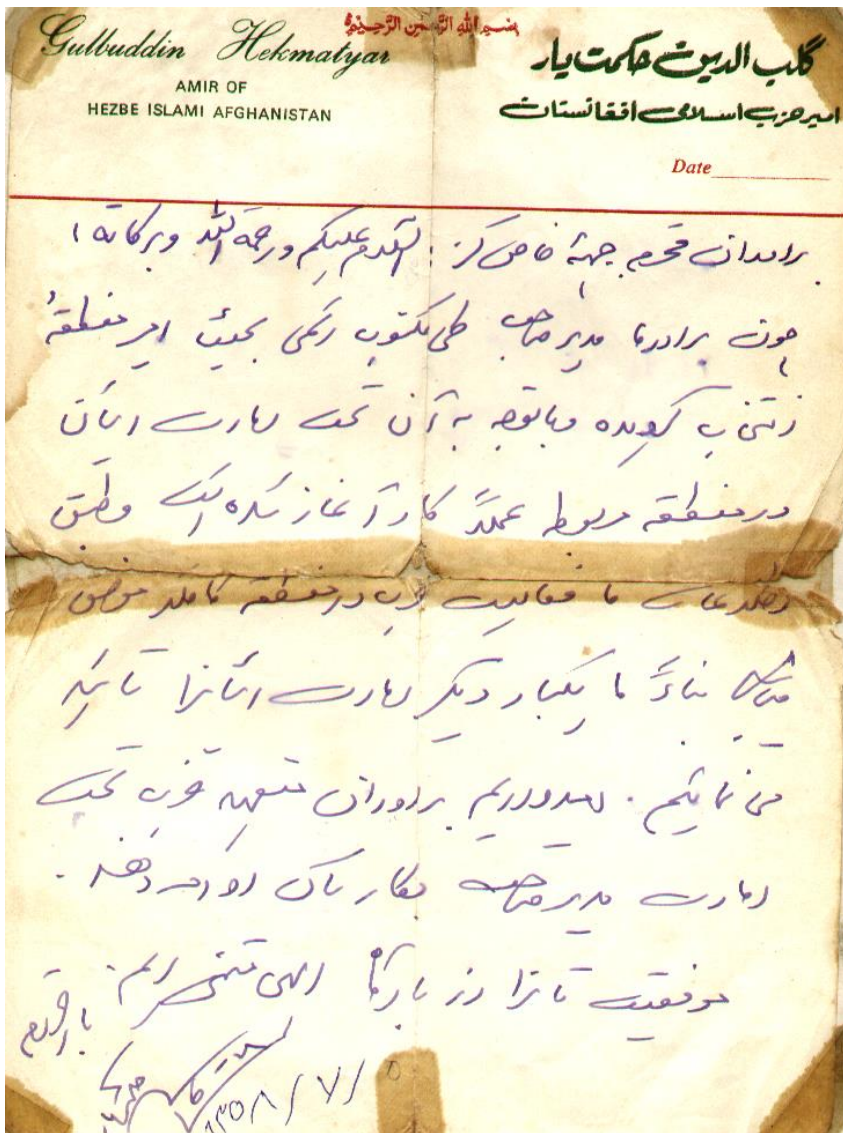 بسم الله الرحمن الرحیم
Gulbuddin Hekmatyar
AMIR OF
HEZBE ISLAMI AFGHANISTAN
گلب الدین حکمت یار
امیر حزب اسلامی افغانستان
Date
برادران محترم جبهه خاص کز : السلام علیکم ورحمة الله وبرکاته !
چون برادر ما مدیر صاحب طی مکتوب رسمی بحیث امیر منطقهٔ
انتخاب گردیده و باتوجه به آن تحت امارت ایشان
در منطقه مربوط عملاً کار آغاز شده است و طبق
اطلاعات ما فعالیت حزب در منطقه کاملاً
میباشد بناءً ما یکبار دیگر امارت ایشانرا تائید
می نمائیم . امیدواریم برادران متعهد حزب تحت
امارت مدیر صاحب بکار شان ادامه دهند .
موفقیت تانرا از بارگاه الهی تمنی داریم . بااحترام
۱۳۵۸/۷/۵